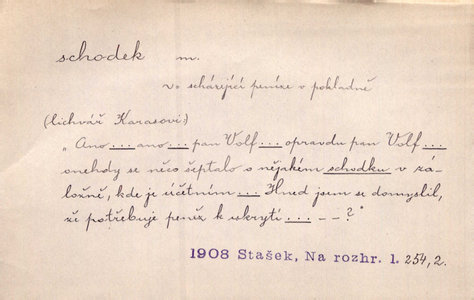 schodek m.
v. scházející peníze v pokladně
(lichvář Karasovi:)
„Ano ... ano ... pan Volf ... opravdu pan Volf ...
onehdy se něco šeptalo o nějakém schodku v zá-
ložně, kde je účetním ... Hned jsem se domyslil,
že potřebuje peněz k ukrytí ... – – ?"
1908 Stašek, Na rozhr. 1. 254, 2.